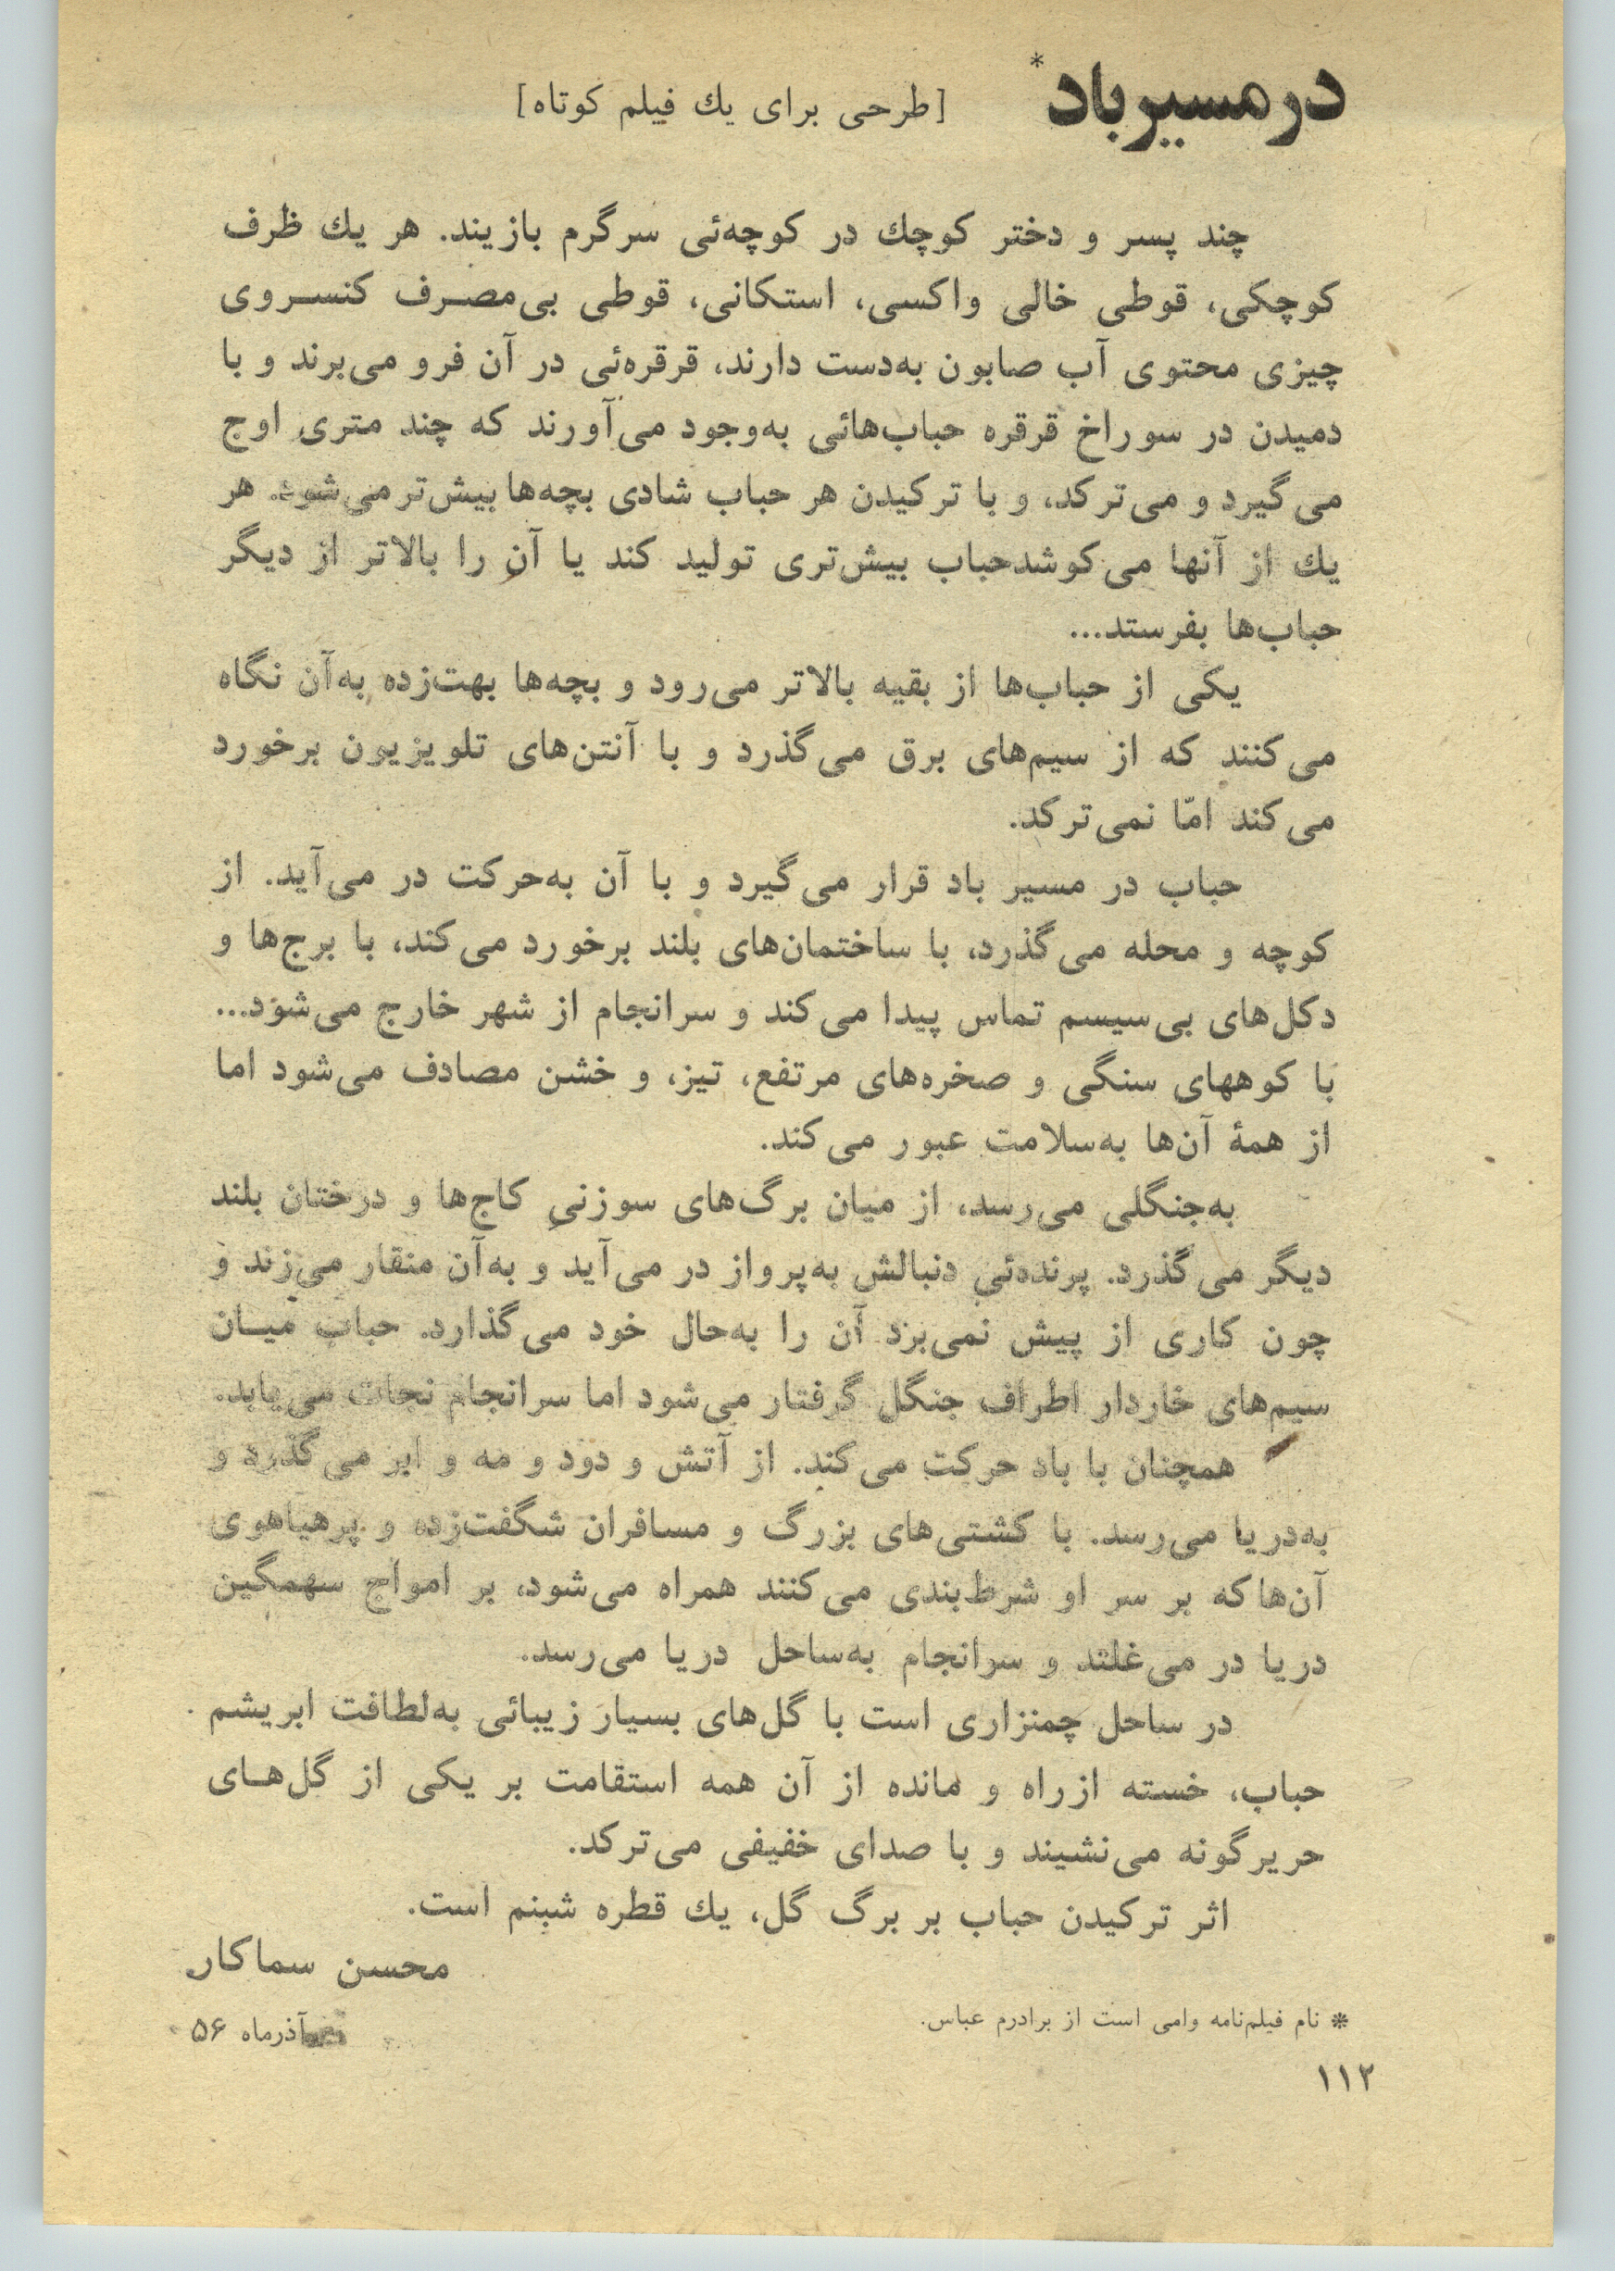 در مسیر باد*
[طرحی برای یك فیلم کوتاه]
چند پسر و دختر کوچك در کوچه‌ئی سرگرم بازیند. هر یك ظرف
کوچکی، قوطی خالی واکسی، استکانی، قوطی بی‌مصرف کنسروی
چیزی محتوی آب صابون به‌دست دارند، قرقره‌ئی در آن فرو می‌برند و با
دمیدن در سوراخ قرقره حباب‌هائی به‌وجود می‌آورند که چند متری اوج
می‌گیرد و می‌ترکد، و با ترکیدن هر حباب شادی بچه‌ها بیش‌تر می‌شود. هر
یك از آنها می‌کوشدحباب بیش‌تری تولید کند یا آن را بالاتر از دیگر
حباب‌ها بفرستد...
یکی از حباب‌ها از بقیه بالاتر می‌رود و بچه‌ها بهت‌زده به‌آن نگاه
می‌کنند که از سیم‌های برق می‌گذرد و با آنتن‌های تلویزیون برخورد
می‌کند امّا نمی‌ترکد.
حباب در مسیر باد قرار می‌گیرد و با آن به‌حرکت در می‌آید. از
کوچه و محله می‌گذرد، با ساختمان‌های بلند برخورد می‌کند، با برج‌ها و
دکل‌های بی‌سیسم تماس پیدا می‌کند و سرانجام از شهر خارج می‌شود...
با کوههای سنگی و صخره‌های مرتفع، تیز، و خشن مصادف می‌شود اما
از همهٔ آن‌ها به‌سلامت عبور می‌کند.
به‌جنگلی می‌رسد، از میان برگ‌های سوزنیِ کاج‌ها و درختان بلند
دیگر می‌گذرد. پرنده‌ئی دنبالش به‌پرواز در می‌آید و به‌آن منقار می‌زند و
چون کاری از پیش نمی‌برد آن را به‌حال خود می‌گذارد. حباب میان
سیم‌های خاردار اطراف جنگل گرفتار می‌شود اما سرانجام نجات می‌یابد.
همچنان با باد حرکت می‌کند. از آتش و دود و مه و ابر می‌گذرد و
به‌دریا می‌رسد. با کشتی‌های بزرگ و مسافران شگفت‌زده و پرهیاهوی
آن‌ها که بر سر او شرط‌بندی می‌کنند همراه می‌شود، بر امواج سهمگین
دریا در می‌غلتد و سرانجام به‌ساحل دریا می‌رسد.
در ساحل چمنزاری است با گل‌های بسیار زیبائی به‌لطافت ابریشم
حباب، خسته ازراه و مانده از آن همه استقامت بر یکی از گل‌های
حریرگونه می‌نشیند و با صدای خفیفی می‌ترکد.
اثر ترکیدن حباب بر برگ گل، یك قطره شبنم است.
محسن سماکار
آذرماه ۵۶
* نام فیلم‌نامه وامی است از برادرم عباس.
۱۱۲